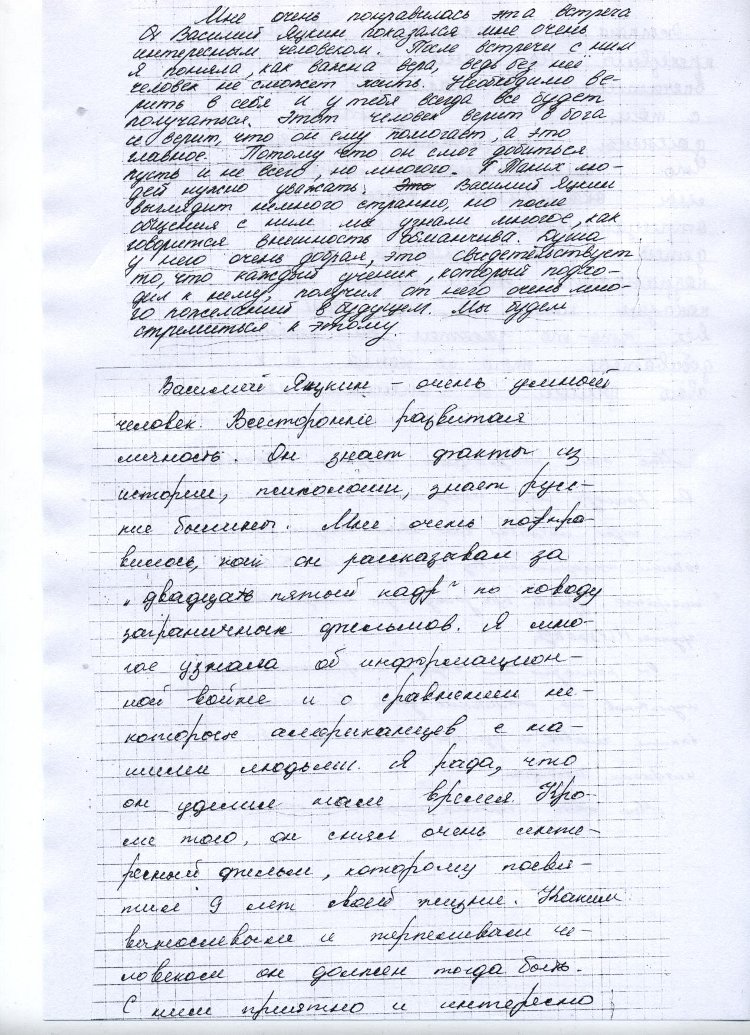 Мне очень понравилась эта встреча
Василий Яцкин показался мне очень
интересным человеком. После встречи с ним
я поняла, как важна вера, ведь без неё
человек не сможет жить. Необходимо ве-
рить в себя и у тебя всегда всё будет
получаться. Этот человек верит в бога
и верит, что он ему помогает, а это
главное. Потому что он смог добиться
пусть и не всего, но многого. Таких лю-
дей нужно уважать. Василий Яцкин
выглядит немного странно, но после
общения с ним мы узнали многое, как
говорится внешность обманчива. Душа
у него очень добрая, это свидетельствует
то, что каждый ученик, который подхо-
дил к нему, получил от него очень мно-
го пожеланий в будущем. Мы будем
стремиться к этому.
Василий Яцкин – очень умный
человек. Всесторонне развитая
личность. Он знает факты из
истории, психологии, знает русс-
кие былины. Мне очень понра-
вилось, как он рассказывал за
„двадцать пятый кадр" по поводу
заграничных фильмов. Я мно-
гое узнала об информацион-
ной войне и о сравнении не-
которых американцев с на-
шими людьми. Я рада, что
он уделил нам время. Кро-
ме того, он снял очень инте-
ресный фильм, которому посвя-
тил 9 лет своей жизни. Каким
выносливым и терпеливым че-
ловеком он должен тогда быть.
С ним приятно и интересно